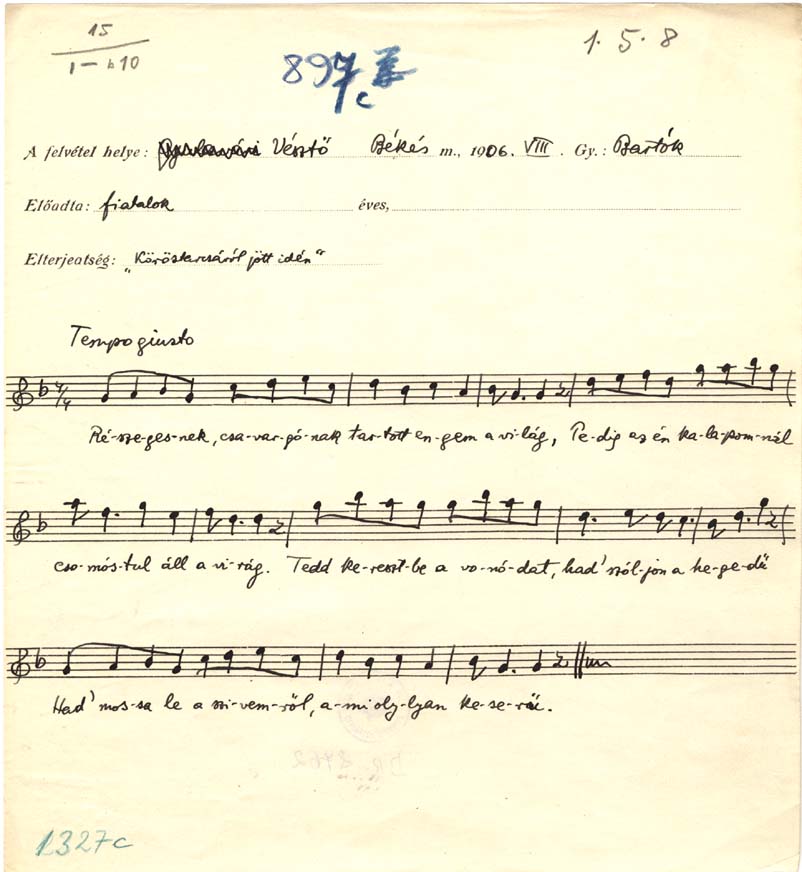 15
1 – b10
1. 5. 8
897
c
A felvétel helye: Vésztő Békés m., 1906. VIII. Gy.: Bartók
Előadta: fiatalok éves,
Elterjeatség: „Köröstarcsáról jött idén"
Tempo giusto
4/4
Ré-sze-ges-nek, csa-var-gó-nak tar-tott en-gem a vi-lág, Pe-dig az én ka-la-pom-nál
cso-mós-tul áll a vi-rág. Tedd ke-reszt-be a vo-nó-dat, had' szól-jon a he-ge-dü
Had' mos-sa le a szi-vem-ről, a-mi oly-lyan ke-se-rü.
1327c